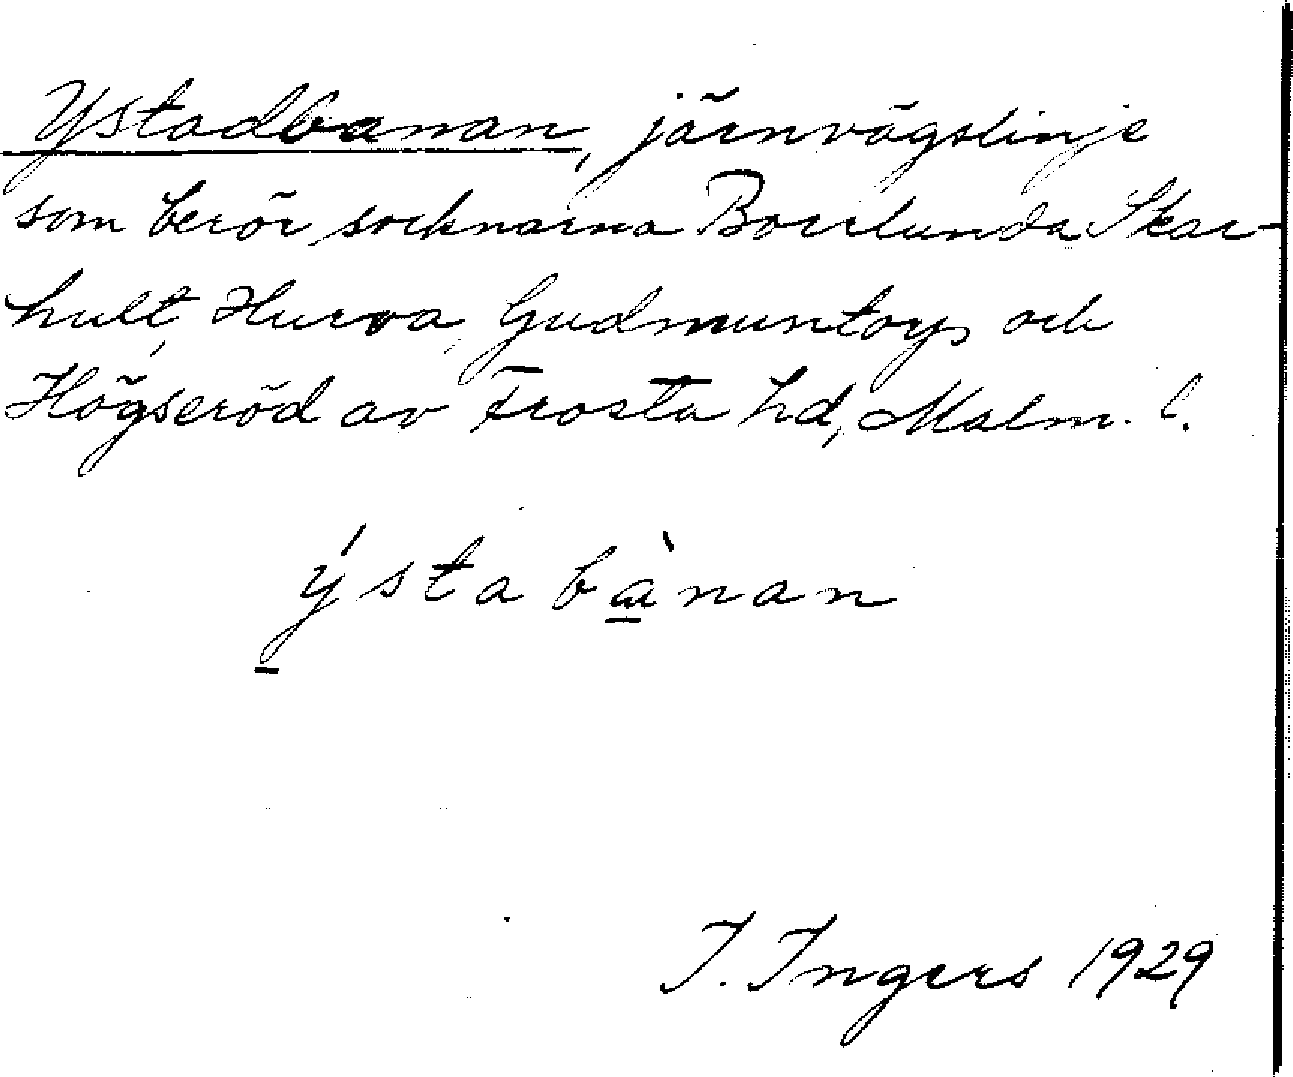 Ystadbanan, järnvägslinje
som berör socknarna Borrlunda Skar-
hult, Hurva, Gudmuntorp och
Högseröd av Frosta hd, Malm. l.
ýsta bànan
I. Ingers 1929